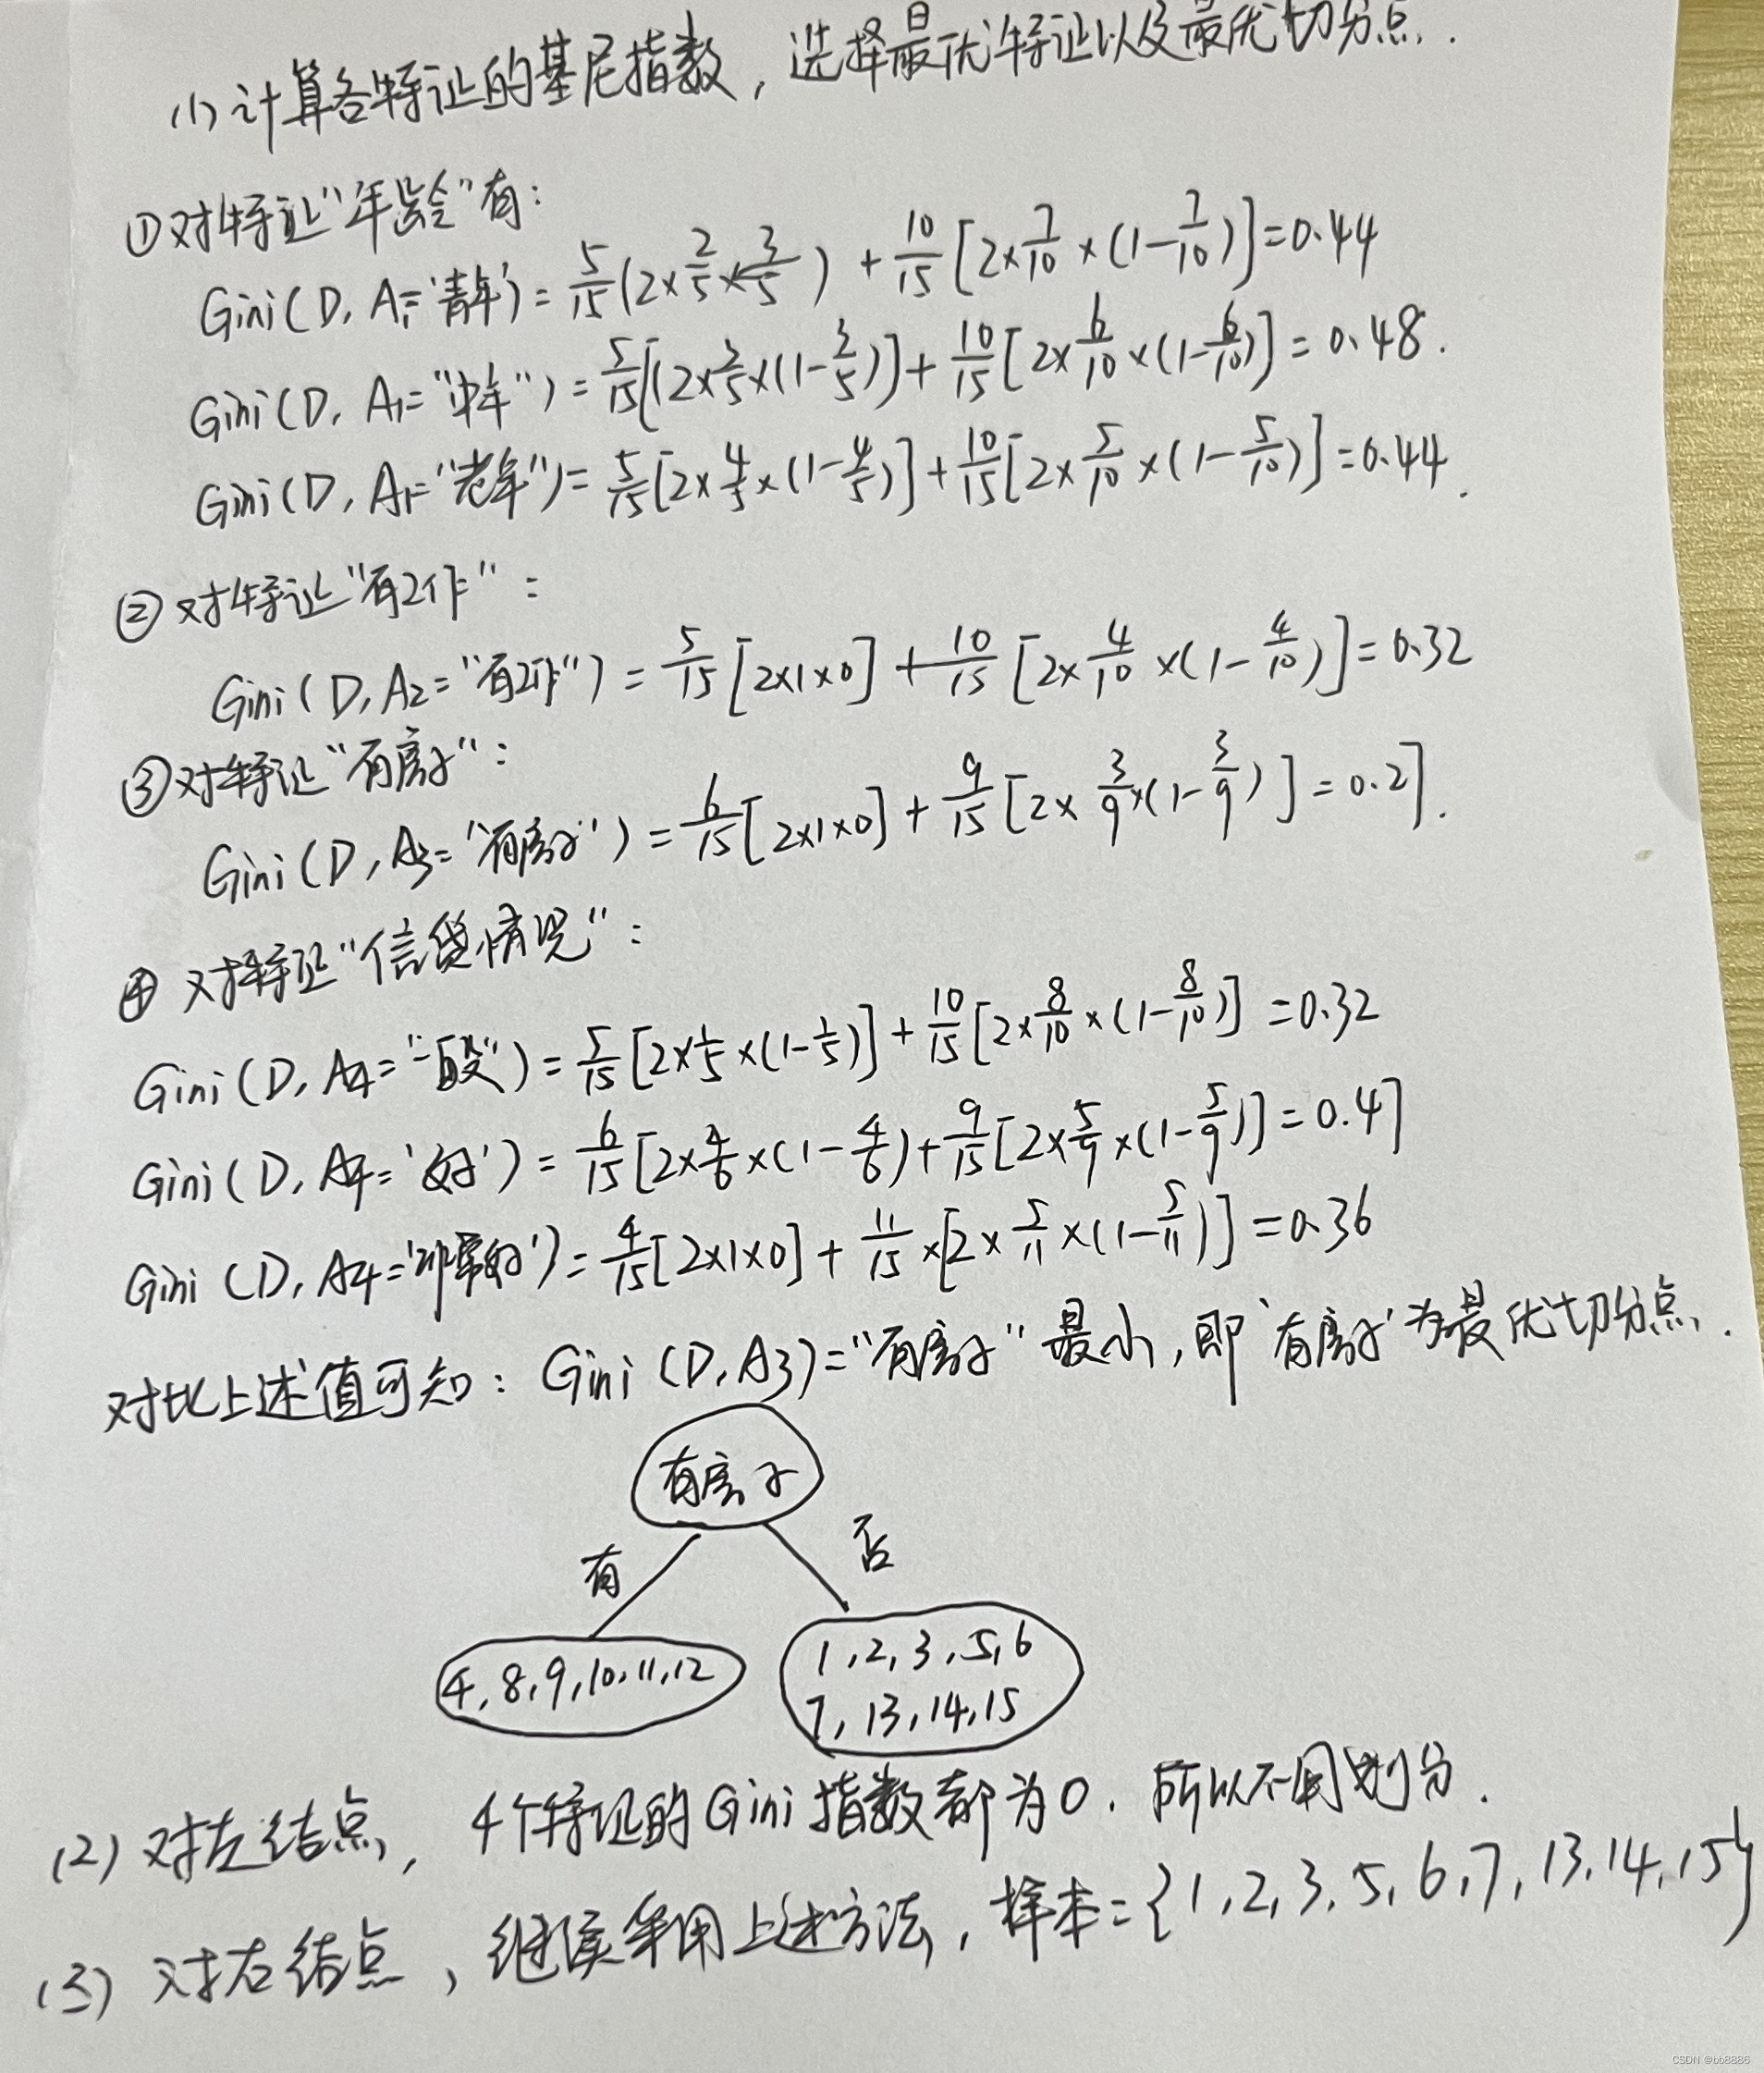 (1) 计算各特征的基尼指数，选择最优特征以及最优切分点.
①对特征"年龄"有：
Gini(D, A₁='青年') = 5/15(2×2/5×3/5) + 10/15[2×7/10×(1-7/10)] = 0.44
Gini(D, A₁="中年") = 5/15[(2×3/5×(1-3/5)] + 10/15[2×6/10×(1-6/10)] = 0.48.
Gini(D, A₁="老年") = 5/15[2×4/5×(1-4/5)] + 10/15[2×5/10×(1-5/10)] = 0.44.
②对特征"有工作"：
Gini(D, A₂="有工作") = 5/15[2×1×0] + 10/15[2×4/10×(1-4/10)] = 0.32
③对特征"有房子"：
Gini(D, A₃="有房子") = 6/15[2×1×0] + 9/15[2×3/9×(1-3/9)] = 0.27.
④ 对特征"信贷情况"：
Gini(D, A₄="一般") = 5/15[2×1/5×(1-1/5)] + 10/15[2×8/10×(1-8/10)] = 0.32
Gini(D, A₄='好') = 6/15[2×4/6×(1-4/6) + 9/15[2×5/9×(1-5/9)] = 0.47
Gini(D, A₄='非常好') = 4/15[2×1×0] + 11/15×[2×5/11×(1-5/11)] = 0.36
对比上述值可知：Gini(D, A₃)="有房子"最小，即'有房子'为最优切分点.
有房子
有 否
4,8,9,10,11,12
1,2,3,5,6
7,13,14,15
(2) 对左结点，4个特征的Gini指数都为0. 所以不用划分.
(3) 对右结点，继续采用上述方法，样本={1,2,3,5,6,7,13,14,15}
CSDN @bb8886